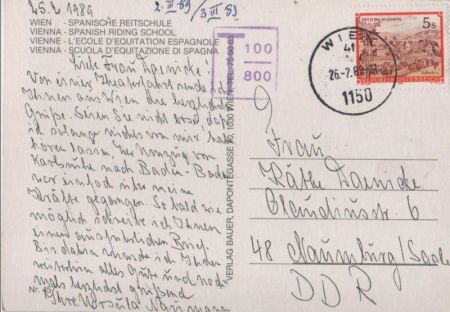 25.2.1989
2. III 89 / 3 III 89
WIEN - SPANISCHE REITSCHULE
VIENNA - SPANISH RIDING SCHOOL
VIENNE - L'ECOLE D'EQUITATION ESPAGNOLE
VIENNA - SCUOLA D'EQUITAZIONE DI SPAGNA
T 100
800
5s
REPUBLIK ÖSTERREICH
WIEN
41
1150
Liebe Frau Daenicke!
Von einer Theaterfahrt sende ich
Ihnen aus Wien die herzlichsten
Grüße. Seien Sie nicht böse, daß
ich solange nichts von mir habe
hören lassen. Der Umzug von
Karlsruhe nach Baden-Baden
war einfach über meine
Kräfte gegangen. So bald wie
möglich schreibe ich Ihnen
einen ausführlichen Brief.
Bis dahin wünsche ich Ihnen
weiterhin alles Gute und noch-
mals herzlichst grüßend
Ihre Ursula Naumann
Nr. 45
VERLAG BAUER, DAPONTEGASSE 10, 1030 WIEN, TEL.
Frau
Käthe Daenicke
Claudiusstr. 6
48 Naumburg/Saale
DDR